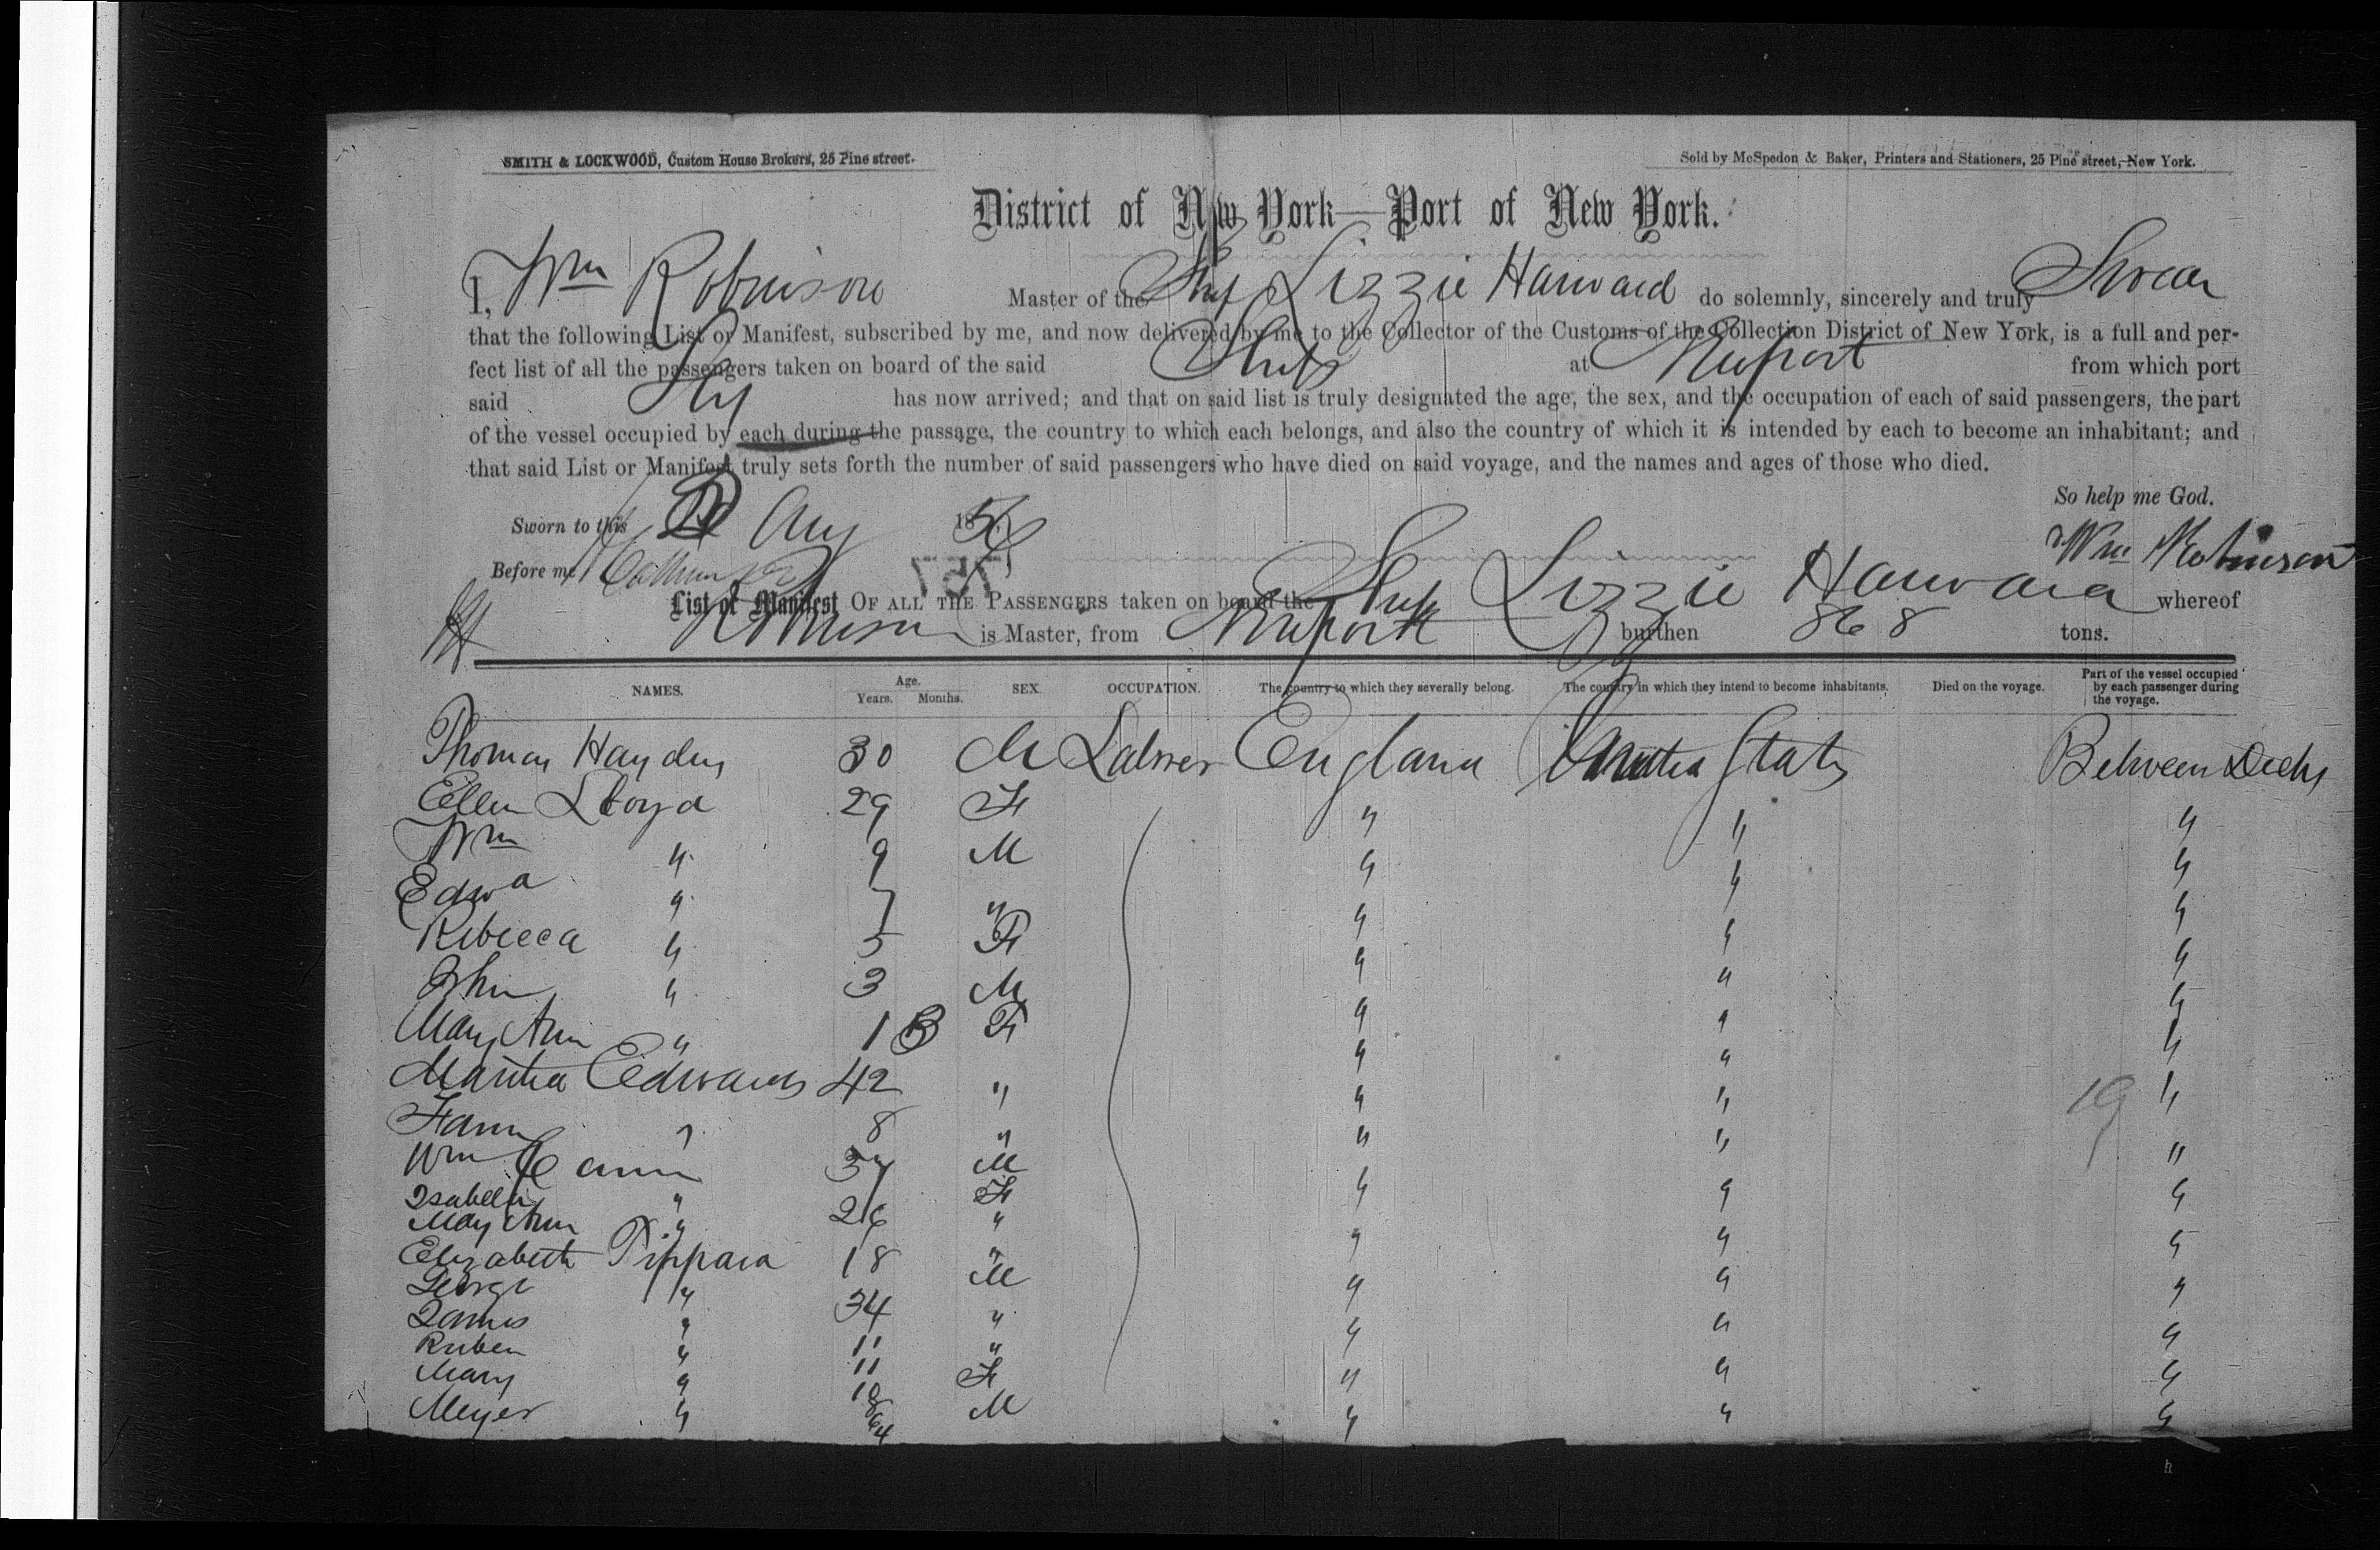 SMITH & LOCKWOOD, Custom House Brokers, 25 Pine street.
Sold by McSpedon & Baker, Printers and Stationers, 25 Pine street, New York.
District of New York—Port of New York.
I, Wm Robinson Master of the Ship Lizzie Harward do solemnly, sincerely and truly Swear
that the following List or Manifest, subscribed by me, and now delivered by me to the Collector of the Customs of the Collection District of New York, is a full and per-
fect list of all the passengers taken on board of the said Ship at Nuport from which port
said has now arrived; and that on said list is truly designated the age, the sex, and the occupation of each of said passengers, the part
of the vessel occupied by each during the passage, the country to which each belongs, and also the country of which it is intended by each to become an inhabitant; and
that said List or Manifest truly sets forth the number of said passengers who have died on said voyage, and the names and ages of those who died.
So help me God.
Sworn to this Aug 185
Wm Robinson
Before me
757
List or Manifest OF ALL THE PASSENGERS taken on board the Ship Lizzie Harward whereof
Robinson is Master, from Nuport burthen 868 tons.
NAMES. Age. Years. Months. SEX. OCCUPATION. The country to which they severally belong. The country in which they intend to become inhabitants. Died on the voyage. Part of the vessel occupied by each passenger during the voyage.
Thomas Hayden 30 M Labrer England United States Between Decks
Ellen Lloyd 29 F " " "
Wm " 9 M " " "
Edwd " 7 " " " "
Rebecca " 5 F " " "
John " 3 M " " "
Mary Ann " 1 F " " "
Martha Edwards 42 " " " " 19
Fanny " 8 " " " "
Wm Cann 37 M " " "
Isabella " 26 F " " "
Mary Ann " " " " "
Elizabeth Tippara 18 " " " "
George " 34 M " " "
James " 11 " " " "
Ruben " 11 " " " "
Mary " 18 F " " "
Meyer " M " " "